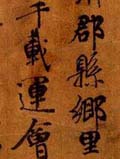 郡縣鄉里
千載運會